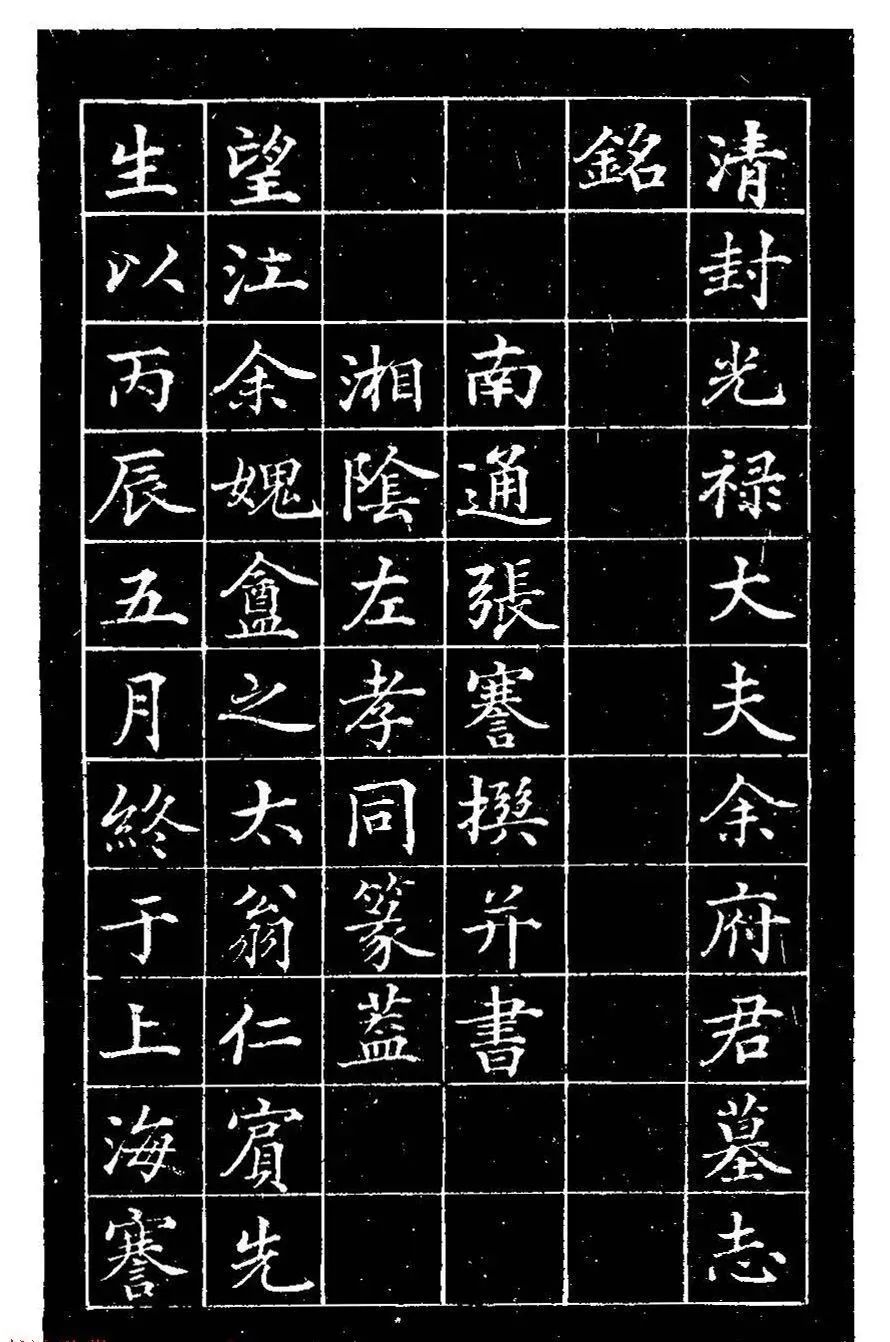 清封光禄大夫余府君墓志
銘
南通張謇撰并書
湘陰左孝同篆蓋
望江余媿盦之太翁仁賔先
生以丙辰五月終于上海謇